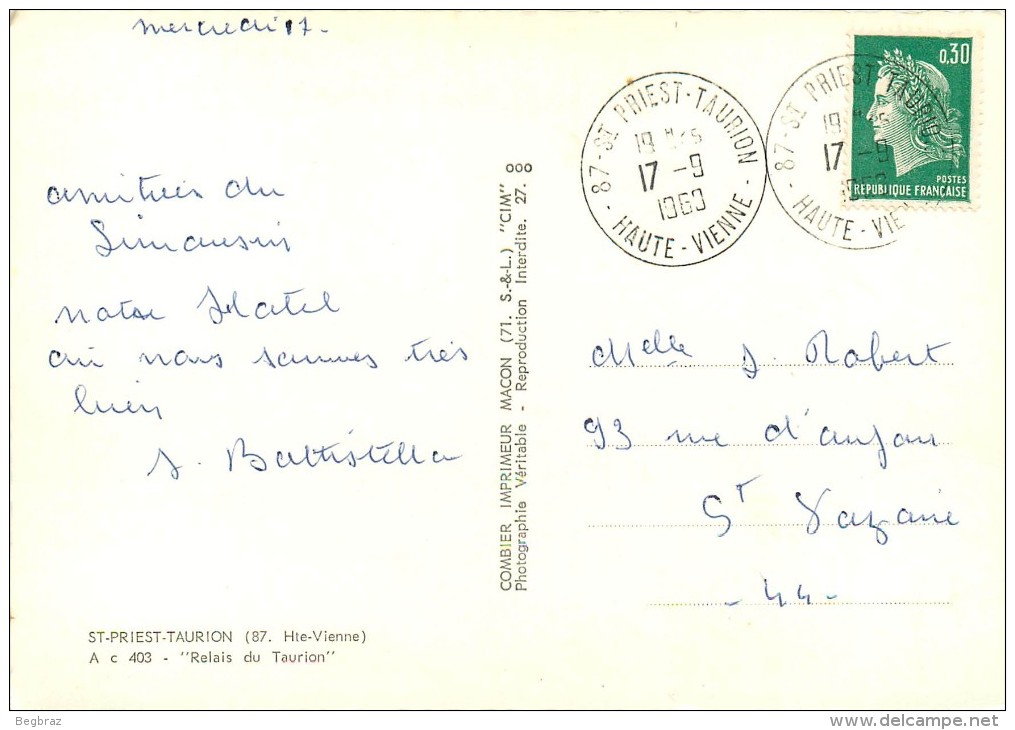 mercredi 17-
amitiés du
Limousin
notre Hotel
où nous sommes très
bien
J. Battistella
COMBIER IMPRIMEUR MACON (71. S.-&-L.) "CIM"
Photographie Véritable - Reproduction Interdite. 27. 000
87 - ST PRIEST-TAURION
17 -9
1969
- HAUTE - VIENNE -
87 - ST PRIEST-TAURION
17 -9
- HAUTE - VIENNE
0,30
POSTES
REPUBLIQUE FRANÇAISE
Melle J. Robert
93 rue d'anjou
St Nazaire
- 44 -
ST-PRIEST-TAURION (87. Hte-Vienne)
A c 403 - "Relais du Taurion"
Begbraz
delcampe.net